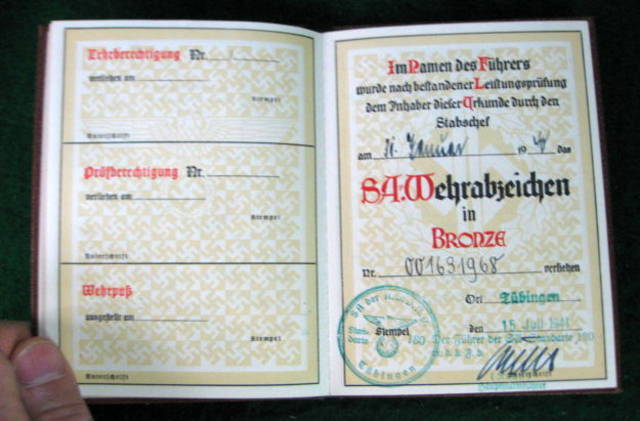 Lehrberechtigung Nr.
verliehen am
Stempel
Unterschrift
Prüfberechtigung Nr.
verliehen am
Stempel
Unterschrift
Wehrpaß
ausgestellt am
Stempel
Unterschrift
Im Namen des Führers
wurde nach bestandener Leistungsprüfung
dem Inhaber dieser Urkunde durch den
Stabschef
am Januar 19 das
SA-Wehrabzeichen
in
BRONZE
Nr. 00163196B verliehen
Ort Tübingen
Stempel den 15. Juli 1941
180 Der Führer der Standarte 180
Tübingen
Hauptsturmführer